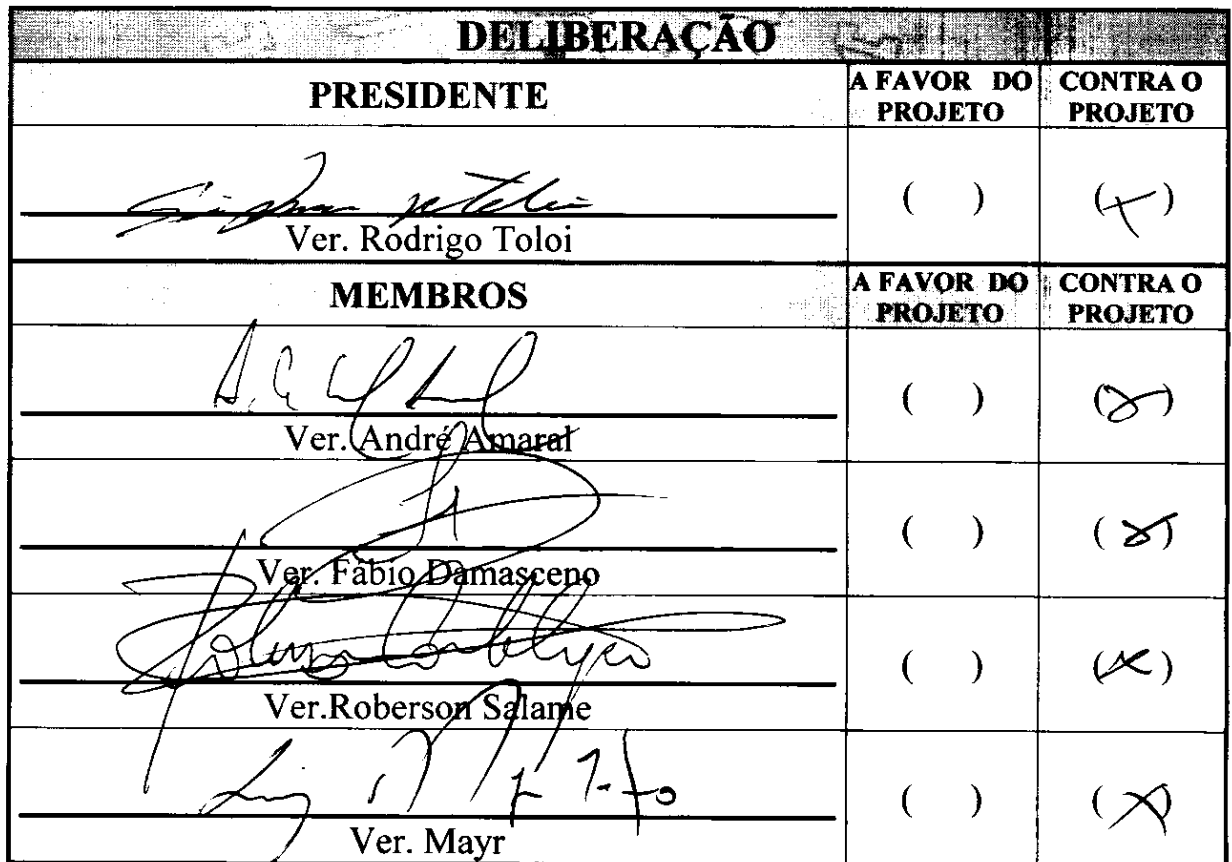 DELIBERAÇÃO
PRESIDENTE
A FAVOR DO PROJETO
CONTRA O PROJETO
( )
(X)
Ver. Rodrigo Toloi
MEMBROS
A FAVOR DO PROJETO
CONTRA O PROJETO
( )
(X)
Ver. André Amaral
( )
(X)
Ver. Fábio Damasceno
( )
(X)
Ver.Roberson Salame
( )
(X)
Ver. Mayr